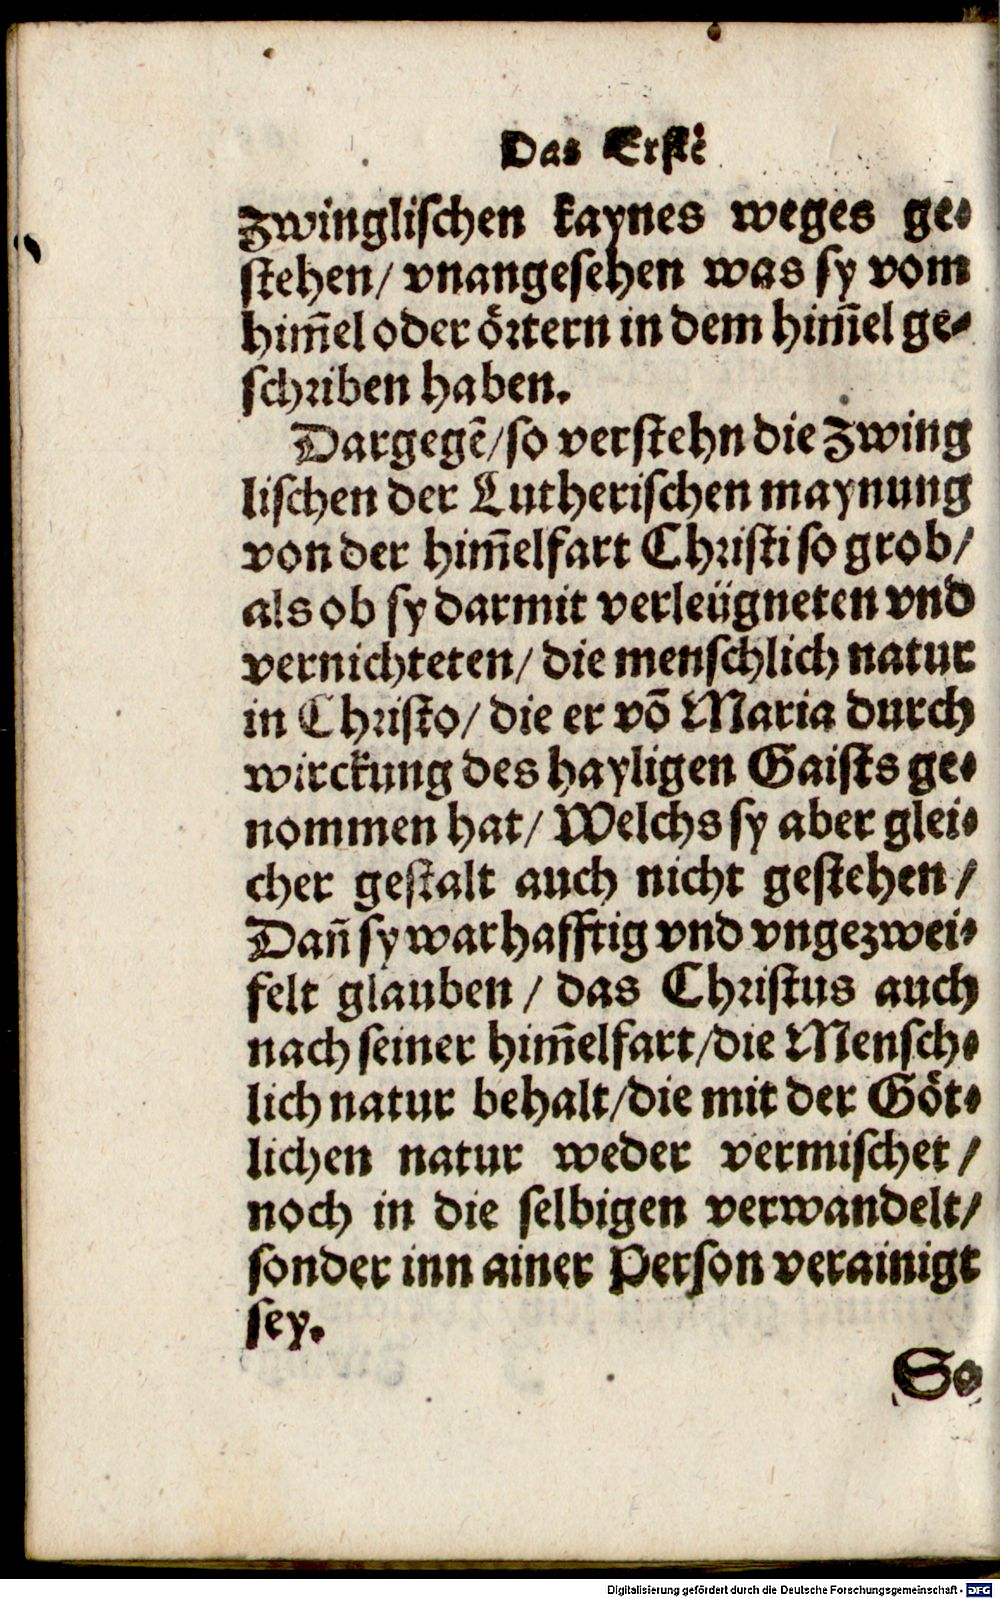 Das Erstē
Zwinglischen kaynes weges ge-
stehen/ vnangesehen was sy vom
him̄el oder örtern in dem him̄el ge-
schriben haben.
Dargegē/ so verstehn die Zwing
lischen der Lutherischen maynung
von der him̄elfart Christi so grob/
als ob sy darmit verleügneten vnd
vernichteten/ die menschlich natur
in Christo/ die er vō Maria durch
wirckung des hayligen Gaists ge-
nommen hat/ Welchs sy aber glei-
cher gestalt auch nicht gestehen/
Dañ sy warhafftig vnd vngezwei-
felt glauben/ das Christus auch
nach seiner him̄elfart/ die Mensch-
lich natur behalt/ die mit der Göt-
lichen natur weder vermischet/
noch in die selbigen verwandelt/
sonder inn ainer Person verainigt
sey.
So
Digitalisierung gefördert durch die Deutsche Forschungsgemeinschaft - DFG